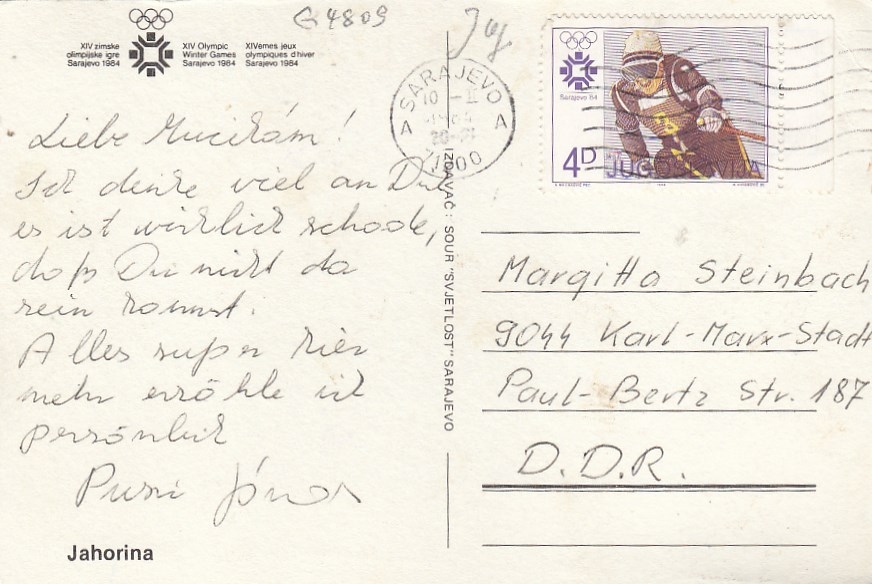 G 4809
Jug
XIV zimske
olimpijske igre
Sarajevo 1984
XIV Olympic
Winter Games
Sarajevo 1984
XIVemes jeux
olympiques d'hiver
Sarajevo 1984
SARAJEVO
A A
71000
Sarajevo '84
4D JUGOSLAVIJA
Liebe !
Ich denke viel an Dich
es ist wirklich schade,
daß Du nicht da
sein kannst.
Alles super hier
mehr erzähle ich
persönlich
Puszi János
Jahorina
IZDAVAČ: SOUR "SVJETLOST" SARAJEVO
Margitta Steinbach
9044 Karl-Marx-Stadt
Paul-Bertz Str. 187
D.D.R.